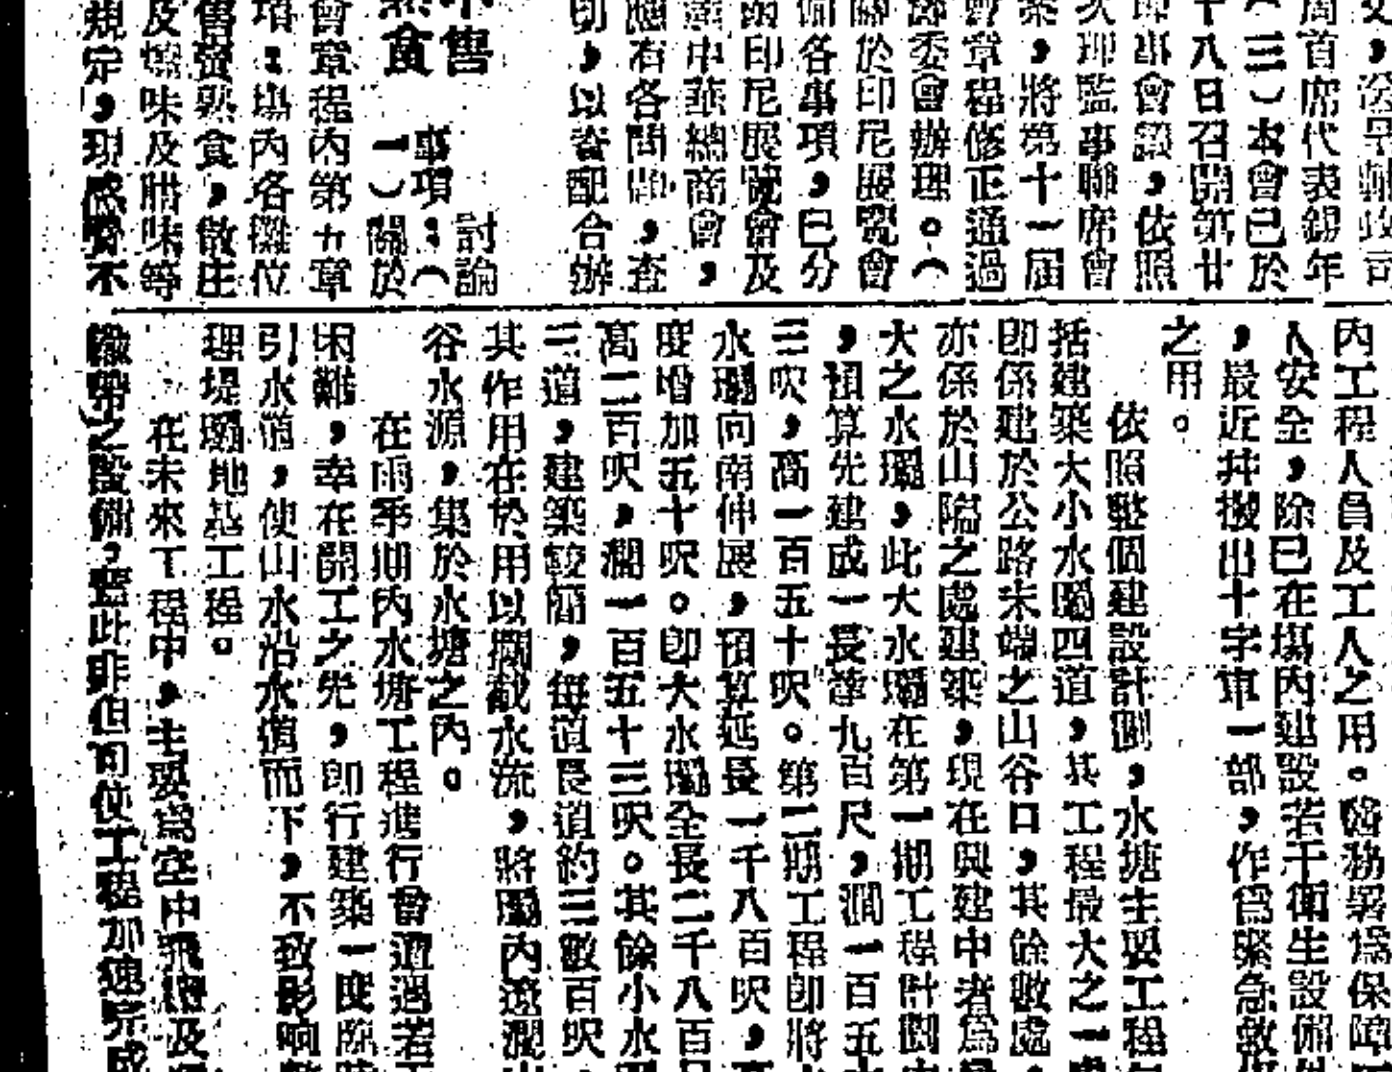 周首席代表錫年
（三）本會已於
十八日召開第廿
即事會議，依照
次理監事聯席會
案，將第十一屆
會章程修正通過
委會辦理。（
關於印尼展覽會
備各事項，已分
印尼展覽會及
中華總商會，
應有各問題，查
切，以資配合辦
售
熟食
討論
事項：（
一）關於
會章程內第九章
項：場內各攤位
售賣熟食，散庄
及燒味及腊味等
規定，現感覺不
內工程人員及工人之用。醫務署為保障
人安全，除已在場內建設若干衛生設備外
，最近幷撥出十字車一部，作為緊急救
之用。
依照整個建設計劃，水塘主要工程
括建築大小水壩四道，其工程最大之一處
即係建於公路末端之山谷口，其餘數處
亦係於山隘之處建築，現在興建中者為
大之水壩，此大水壩在第一期工程計劃
，預算先建成一長達九百尺，濶一百五
三呎，高一百五十呎。第二期工程即將
水壩向南伸展，預算延長一千八百呎，
度增加五十呎。即大水壩全長二千八百
高二百呎，濶一百五十三呎。其餘小水
三道，建築較簡，每道長道約三數百呎
其作用在於用以攔截水流，將壩內遼濶
谷水源，集於水塘之內。
在雨季期內水塘工程進行曾遭遇若干
困難，幸在開工之先，即行建築一度臨時
引水道，使山水沿水道而下，不致影响
理堤壩地基工程。
在未來工程中，主要為空中飛纜及
帶之設備，藍此非但可使工程加速完成